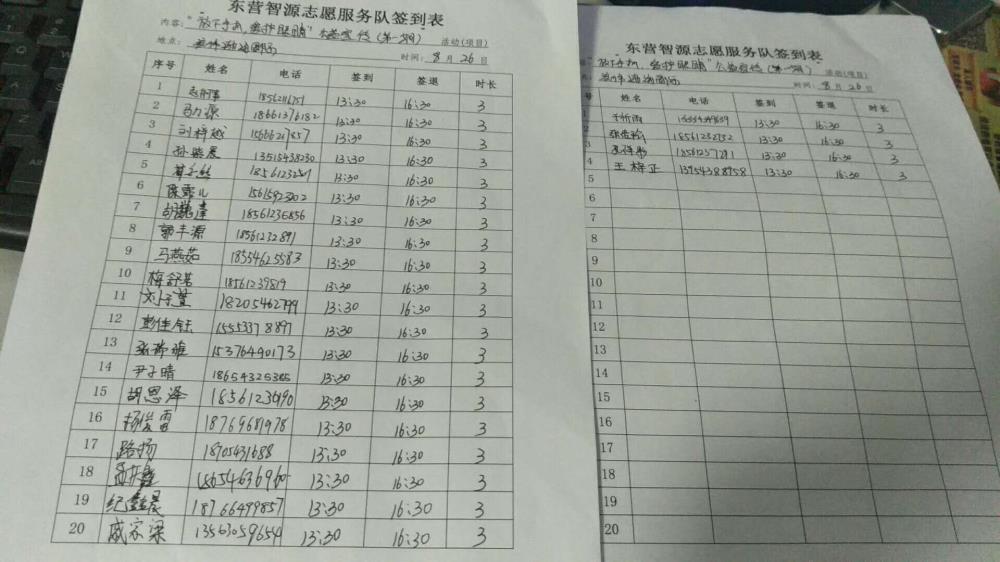 东营智源志愿服务队签到表
内容：“放下手机，爱护眼睛”公益宣传（第一期） 活动(项目)
地点： 时间：8月26日
序号 姓名 电话 签到 签退 时长
1 13:30 16:30 3
2 马力源 18661376182 13:30 16:30 3
3 刘梓越 13:30 16:30 3
4 孙晓晨 13:30 16:30 3
5 13:30 16:30 3
6 陈霏儿 13:30 16:30 3
7 18561236856 13:30 16:30 3
8 郭丰源 18561232891 13:30 16:30 3
9 马燕茹 18354625583 13:30 16:30 3
10 梅舒茗 18561239819 13:30 16:30 3
11 刘子萱 18205462799 13:30 16:30 3
12 彭佳钰 15553378897 13:30 16:30 3
13 15376490173 13:30 16:30 3
14 尹子晴 18654325305 13:30 16:30 3
15 胡恩泽 18561230190 13:30 16:30 3
16 杨俊雷 18769681978 13:30 16:30 3
17 路扬 13:30 16:30 3
18 18654636960 13:30 16:30 3
19 纪鑫晨 18766499857 13:30 16:30 3
20 戚家梁 13563059654 13:30 16:30 3
东营智源志愿服务队签到表
“放下手机，爱护眼睛”公益宣传（第一期） 活动(项目)
时间：8月26日
号 姓名 电话 签到 签退 时长
1 于忻雨 13:30 16:30 3
2 18561232752 13:30 16:30 3
3 18561257281 13:30 16:30 3
4 王梓正 13954388958 13:30 16:30 3
5
6
7
8
9
10
11
12
13
14
15
16
17
18
19
20